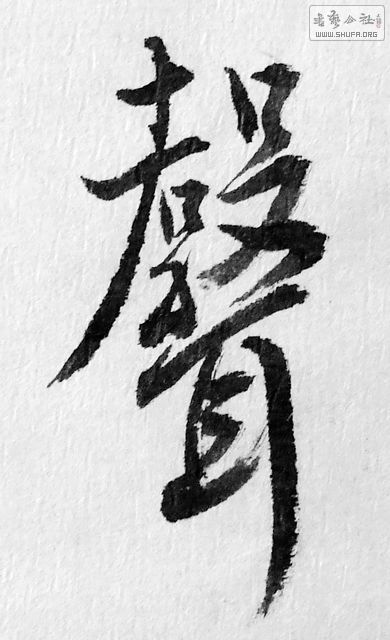 書藝公社
WWW.SHUFA.ORG
聲